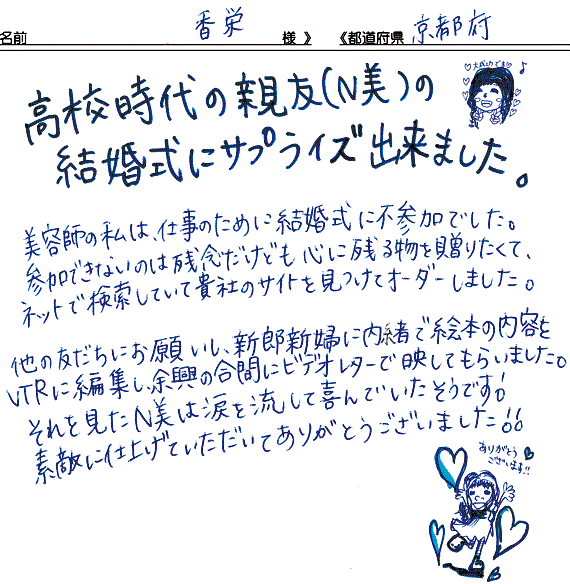 名前 香栄 様 》 《都道府県 京都府
大成功です♡
高校時代の親友(N美)の
結婚式にサプライズ出来ました。
美容師の私は、仕事のために結婚式に不参加でした。
参加できないのは残念だけども心に残る物を贈りたくて、
ネットで検索していて貴社のサイトを見つけてオーダーしました。
他の友だちにお願いし、新郎新婦に内緒で絵本の内容を
VTRに編集し、余興の合間にビデオレターで映してもらいました。
それを見たN美は涙を流して喜んでいたそうです!
素敵に仕上げていただいてありがとうございました!!
ありがとう
ございます!!